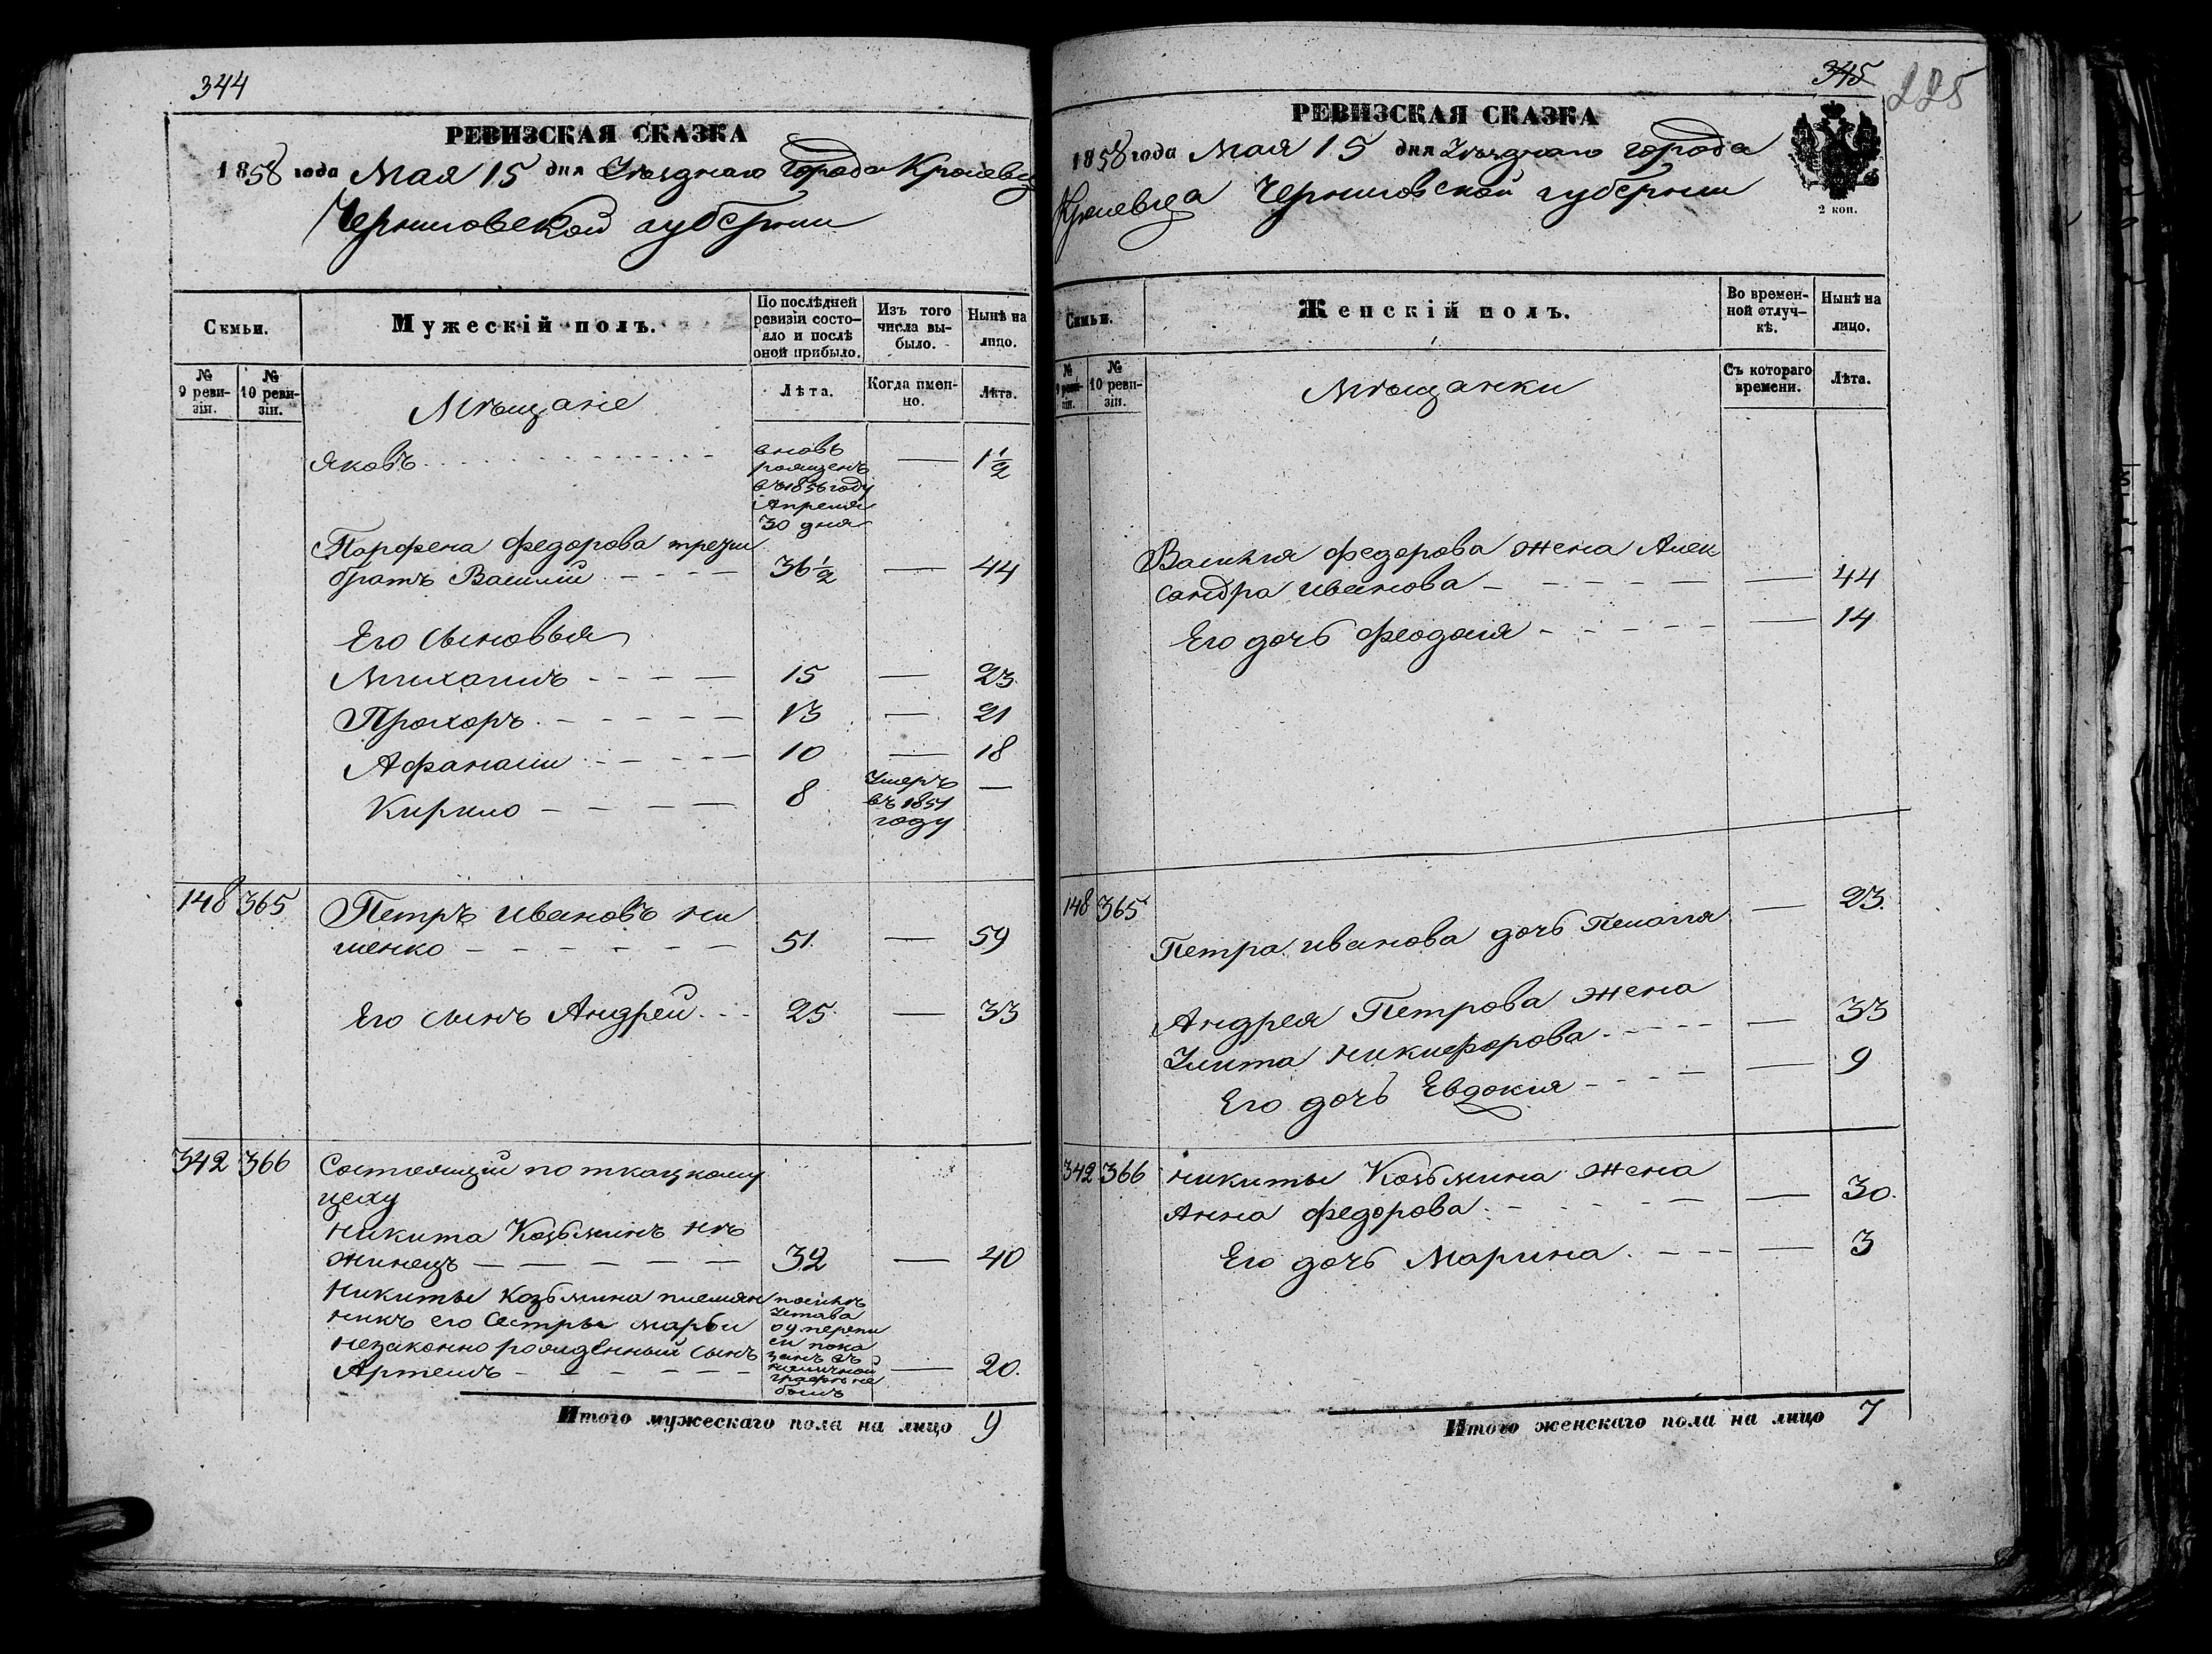 344
РЕВИЗСКАЯ СКАЗКА
1858 года Мая 15 дня Уѣзднаго города Кролевц
Черниговской губерніи
Семьи.
Мужескій полъ.
По послѣдней ревизіи состо-
яло и послѣ
оной прибыло.
Изъ того
числа вы-
было.
Нынѣ на
лицо.
№
9 реви-
зіи.
№
10 реви-
зіи.
Мѣщане
Лѣта.
Когда имен-
но.
Лѣта.
Яковъ — 1½
вновь
рожденъ
въ 1856 году
Апреля
30 дня
Парфена Федорова третій
братъ Василій 36½ — 44
Его сыновья
Михаилъ 15 — 23
Прохоръ 13 — 21
Афанасій 10 — 18
Кирило 8 Умеръ —
въ 1851
году
148 365 Петръ Ивановъ Ни
шенко 51 — 59
Его сынъ Андрей 25 — 33
342 366 Состоящій по ткацкому
цеху
Никита Козьминъ Нѣ
жинецъ 32 — 40
Никиты Козьмина племян
никъ его Сестры Марфы
незаконно рожденный сынъ
Артемъ — 20.
Устава
о 9 перепи
си пока
занъ въ
наличной
графѣ не
былъ
Итого мужескаго пола на лицо 9
345
225
РЕВИЗСКАЯ СКАЗКА
1858 года Мая 15 дня Уѣзднаго города
Кролевца Черниговской губерніи
2 коп.
Семьи.
Женскій полъ.
Во времен-
ной отлуч-
кѣ.
Нынѣ на
лицо.
№
9 реви-
зіи.
№
10 реви-
зіи.
Мѣщанки
Съ котораго
времени.
Лѣта.
Василія Федорова жена Алек
сандра Иванова — 44
Его дочь Феодосія — 14
148 365 — 23.
Петра Иванова дочь Пелагея
Андрея Петрова жена
Улита Никифорова — 33
Его дочь Евдокія — 9
342 366 Никиты Козьмина жена
Анна Федорова — 30.
Его дочь Марина — 3
Итого женскаго пола на лицо 7